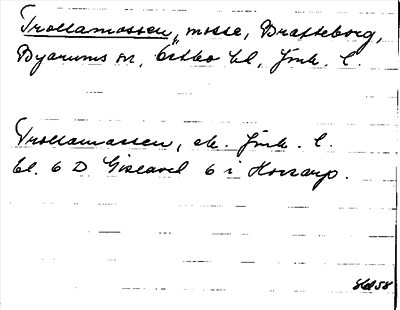 Trollamossen, mosse, Bratteborg,
Byarums sn, Östbo hd, Jönk. l.
Trollamossen, ek. Jönk. l.
bl. 6 D Gislaved 6 i Horsarp.